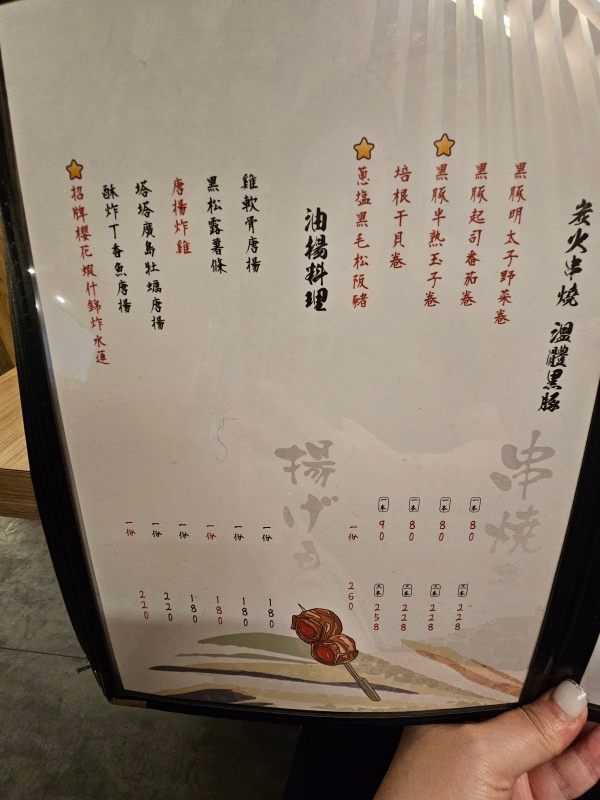 炭火串燒 溫體黑豚
黑豚明太子野菜卷 一本 80 三本 228
黑豚起司番茄卷 一本 80 三本 228
黑豚半熟玉子卷 一本 80 三本 228
培根干貝卷 一本 90 三本 258
蔥塩黑毛松阪豬 一份 260
串焼
油揚料理
雞軟骨唐揚 一份 180
黑松露薯條 一份 180
唐揚炸雞 一份 180
塔塔廣島牡蠣唐揚 一份 180
酥炸丁香魚唐揚 一份 220
招牌櫻花蝦什錦炸水蓮 一份 220
揚げる